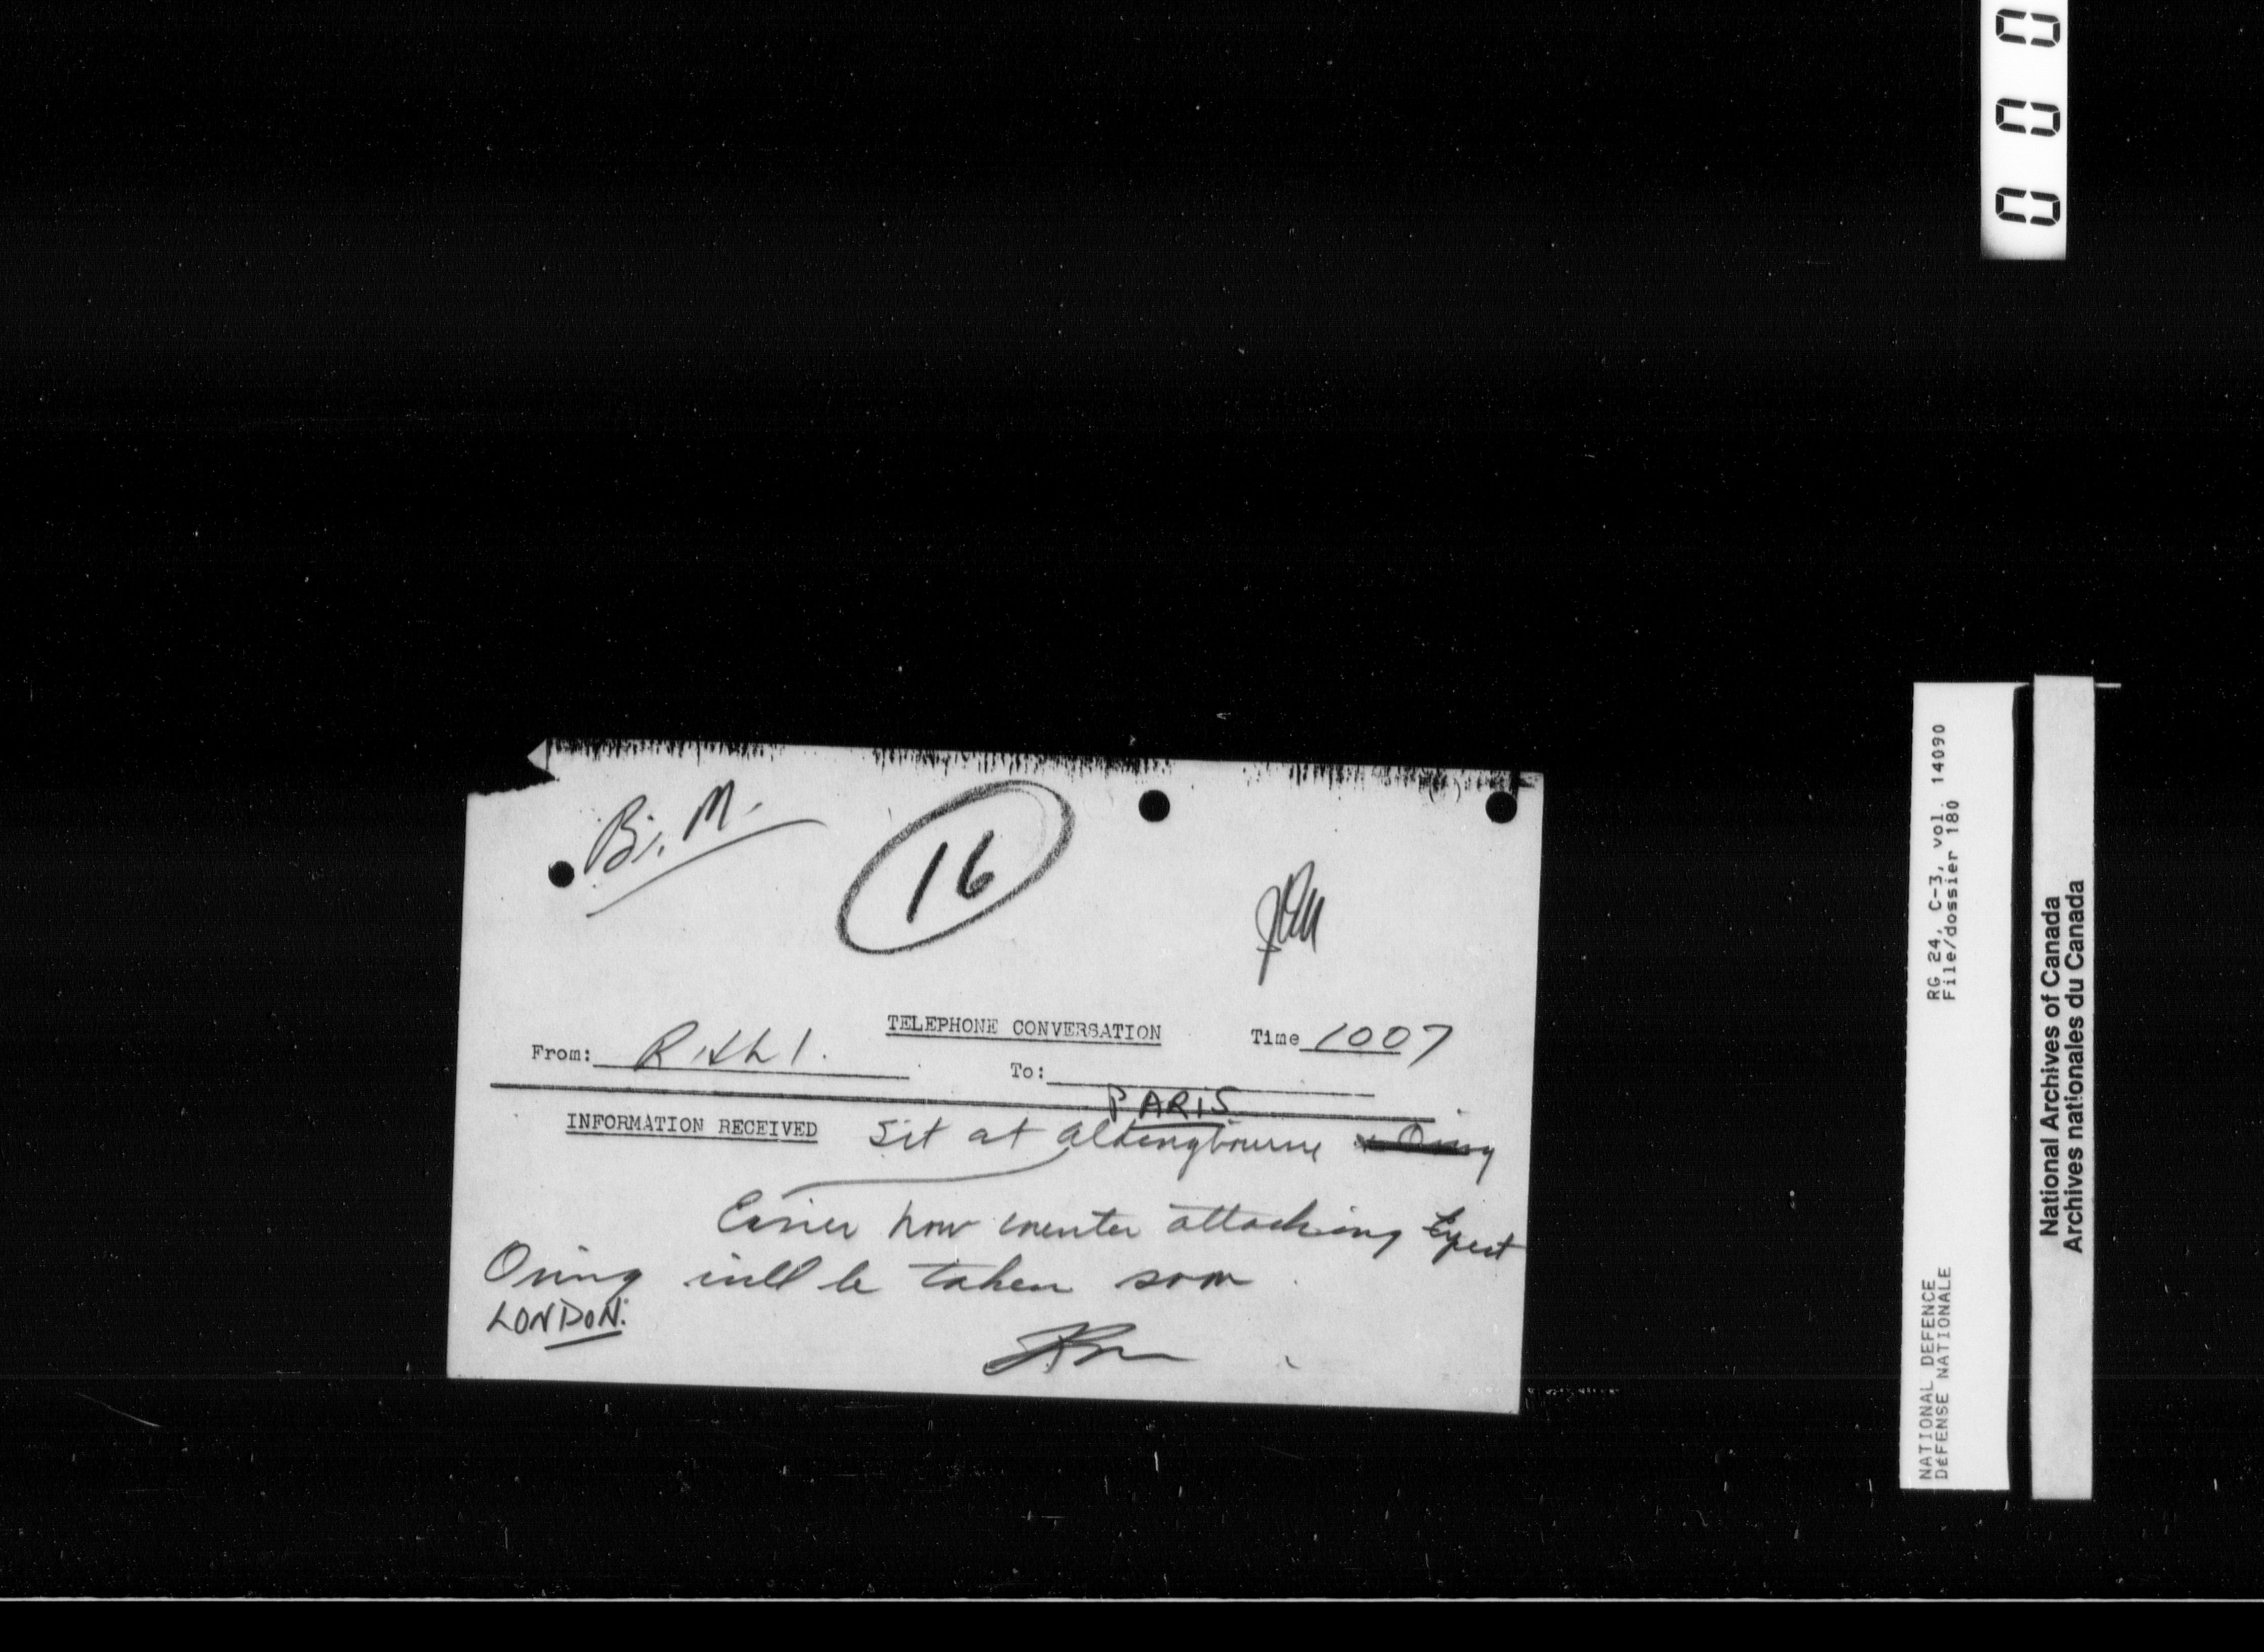 000
Bi. M.
16
TELEPHONE CONVERSATION Time 1007
From: To:
PARIS
INFORMATION RECEIVED Sit at Aldingbourne
now counter attacking Expect
Oving will be taken soon
LONDON.
RG 24, C-3, vol. 14090
File/dossier 180
NATIONAL DEFENCE
DÉFENSE NATIONALE
National Archives of Canada
Archives nationales du Canada